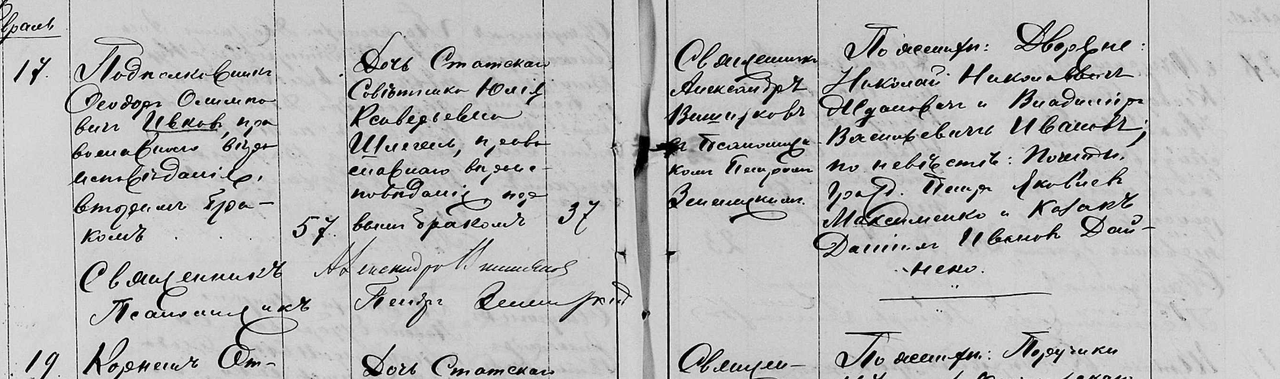 17.
Подполковникъ
Ѳеодоръ Олимпо
вичъ Ивковъ, пра
вославнаго вѣро
исповѣданія,
вторымъ бра-
комъ
57.
Дочь Статскаго
Совѣтника Юлія
Ксаверьевна
Шлегель, право
славнаго вѣроис-
повѣданія пер
вымъ бракомъ
37
Священникъ
Александръ
Вишняковъ
съ Псаломщи
комъ Петромъ
По женихѣ: Дворяне:
Николай Николаевичъ
и Владиміръ
Васильевичъ Ивановъ;
по невѣстѣ: Почетн.
Гражд. Петръ Яковлев
Максименко и Козакъ
Даніилъ Ивановъ Дай-
неко.
Священникъ Александръ Вишняковъ
Псаломщикъ Петръ
19.
Корнетъ
Дочь Статскаго
Священ-
По женихѣ: Поручики